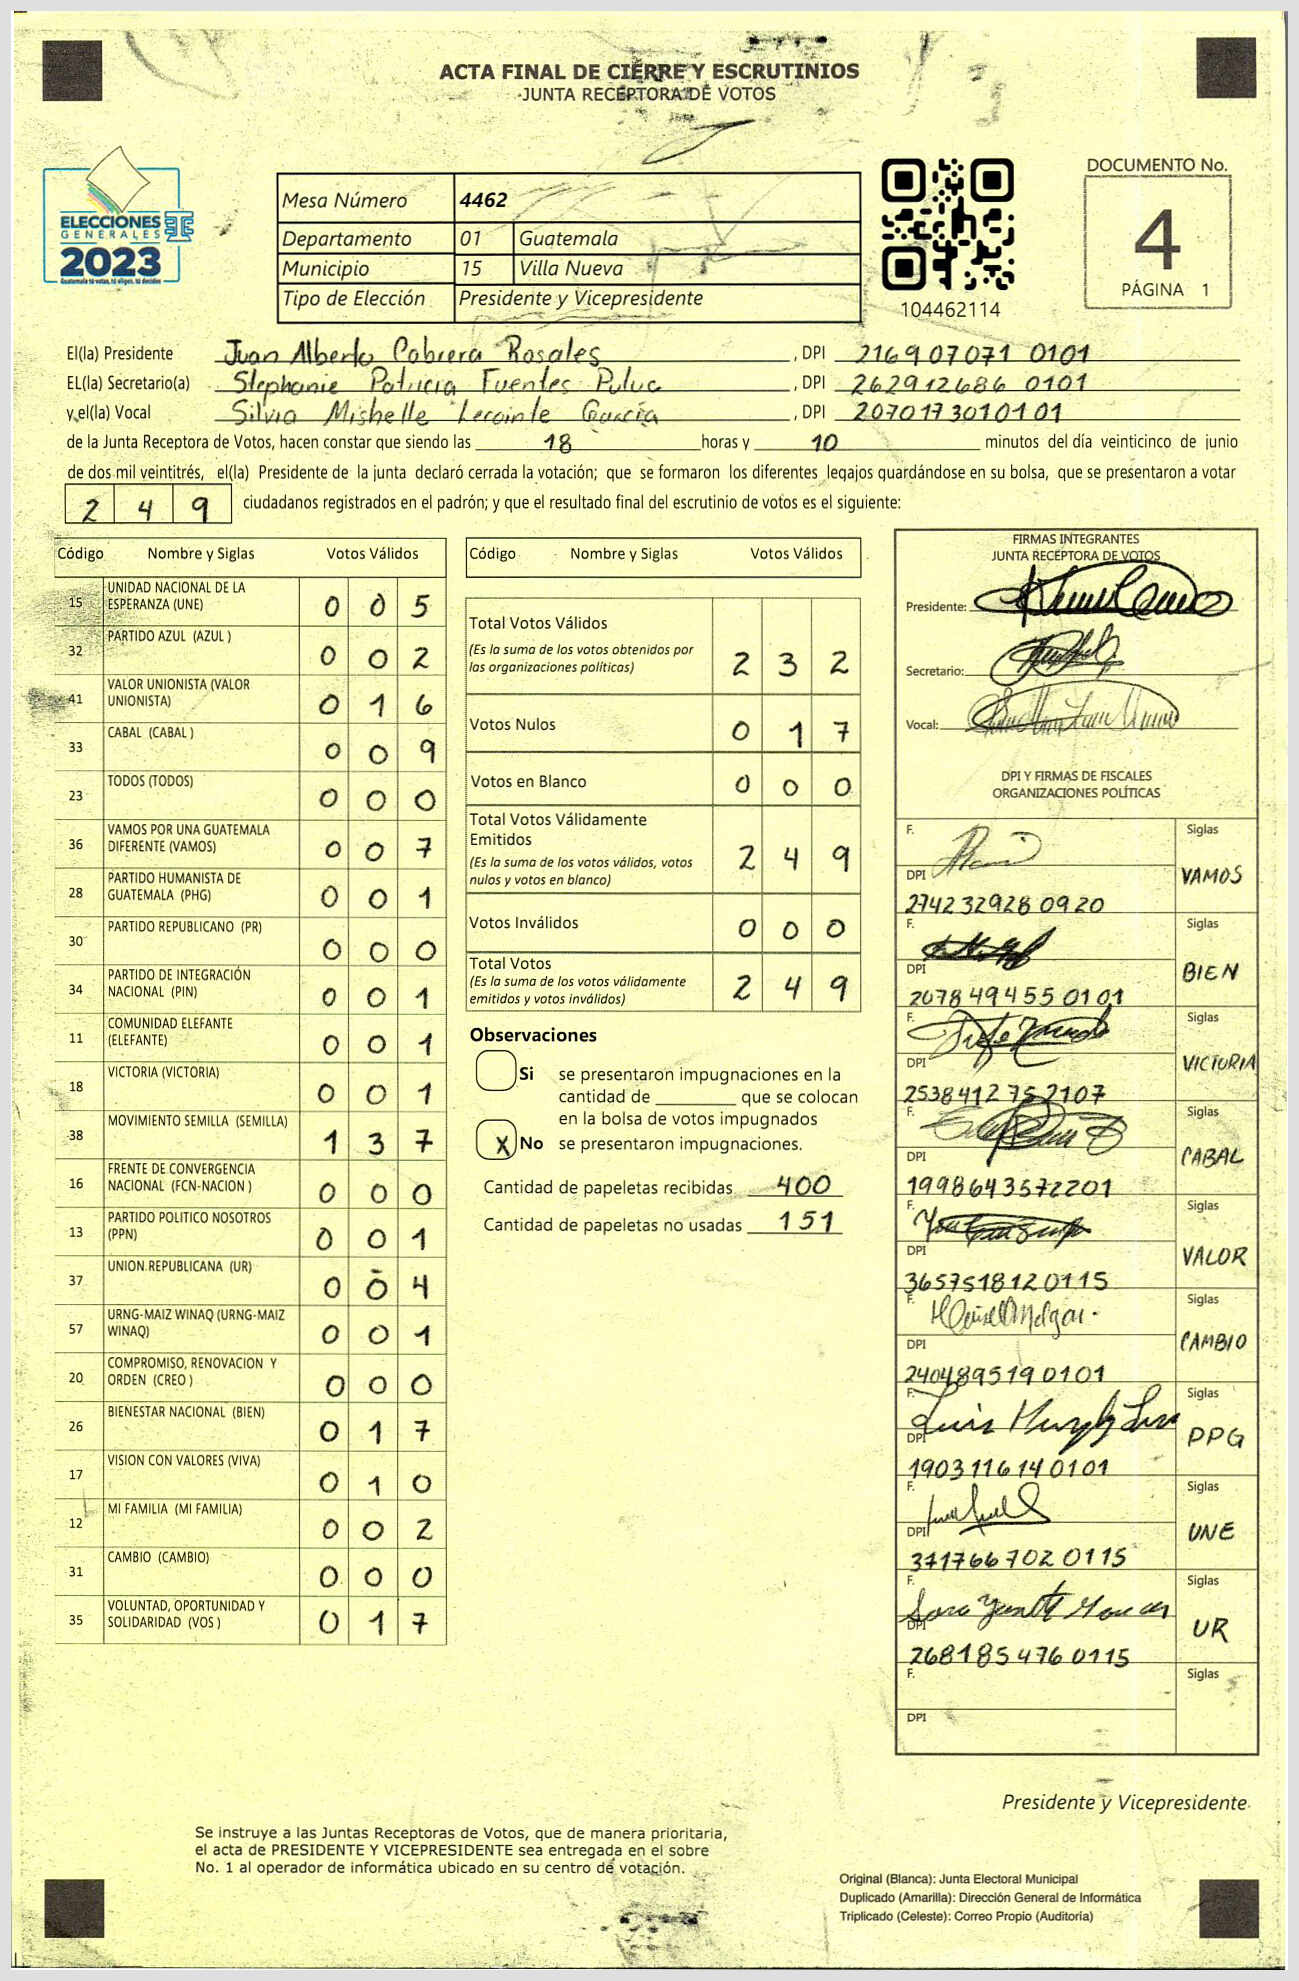 ACTA FINAL DE CIERRE Y ESCRUTINIOS
JUNTA RECEPTORA DE VOTOS
ELECCIONES
GENERALES
2023
Guatemala tú votas, tú eliges, tú decides
Mesa Número 4462
Departamento 01 Guatemala
Municipio 15 Villa Nueva
Tipo de Elección Presidente y Vicepresidente
104462114
DOCUMENTO No.
4
PÁGINA 1
El(la) Presidente Juan Alberto Cabrera Rosales, DPI 216907071 0101
EL(la) Secretario(a) Stephanie Patricia Fuentes Puluc, DPI 262912686 0101
y el(la) Vocal Silvia Mishelle Lecointe García, DPI 2070173010101
de la Junta Receptora de Votos, hacen constar que siendo las 18 horas y 10 minutos del día veinticinco de junio
de dos mil veintitrés, el(la) Presidente de la junta declaró cerrada la votación; que se formaron los diferentes legajos guardándose en su bolsa, que se presentaron a votar
2 4 9 ciudadanos registrados en el padrón; y que el resultado final del escrutinio de votos es el siguiente:
Código Nombre y Siglas Votos Válidos
15 UNIDAD NACIONAL DE LA ESPERANZA (UNE) 0 0 5
32 PARTIDO AZUL (AZUL ) 0 0 2
41 VALOR UNIONISTA (VALOR UNIONISTA) 0 1 6
33 CABAL (CABAL ) 0 0 9
23 TODOS (TODOS) 0 0 0
36 VAMOS POR UNA GUATEMALA DIFERENTE (VAMOS) 0 0 7
28 PARTIDO HUMANISTA DE GUATEMALA (PHG) 0 0 1
30 PARTIDO REPUBLICANO (PR) 0 0 0
34 PARTIDO DE INTEGRACIÓN NACIONAL (PIN) 0 0 1
11 COMUNIDAD ELEFANTE (ELEFANTE) 0 0 1
18 VICTORIA (VICTORIA) 0 0 1
38 MOVIMIENTO SEMILLA (SEMILLA) 1 3 7
16 FRENTE DE CONVERGENCIA NACIONAL (FCN-NACION ) 0 0 0
13 PARTIDO POLITICO NOSOTROS (PPN) 0 0 1
37 UNION REPUBLICANA (UR) 0 0 4
57 URNG-MAIZ WINAQ (URNG-MAIZ WINAQ) 0 0 1
20 COMPROMISO, RENOVACION Y ORDEN (CREO ) 0 0 0
26 BIENESTAR NACIONAL (BIEN) 0 1 7
17 VISION CON VALORES (VIVA) 0 1 0
12 MI FAMILIA (MI FAMILIA) 0 0 2
31 CAMBIO (CAMBIO) 0 0 0
35 VOLUNTAD, OPORTUNIDAD Y SOLIDARIDAD (VOS ) 0 1 7
Código Nombre y Siglas Votos Válidos
Total Votos Válidos
(Es la suma de los votos obtenidos por
las organizaciones políticas) 2 3 2
Votos Nulos 0 1 7
Votos en Blanco 0 0 0
Total Votos Válidamente
Emitidos
(Es la suma de los votos válidos, votos
nulos y votos en blanco) 2 4 9
Votos Inválidos 0 0 0
Total Votos
(Es la suma de los votos válidamente
emitidos y votos inválidos) 2 4 9
Observaciones
Si se presentaron impugnaciones en la
cantidad de ________ que se colocan
en la bolsa de votos impugnados
X No se presentaron impugnaciones.
Cantidad de papeletas recibidas 400
Cantidad de papeletas no usadas 151
FIRMAS INTEGRANTES
JUNTA RECEPTORA DE VOTOS
Presidente:
Secretario:
Vocal:
DPI Y FIRMAS DE FISCALES
ORGANIZACIONES POLÍTICAS
F. Siglas
DPI VAMOS
274232928 0920
F. Siglas
DPI BIEN
207849455 0101
F. Siglas
DPI VICTORIA
253841275 2107
F. Siglas
DPI CABAL
1998643572201
F. Siglas
DPI VALOR
365751812 0115
F. Siglas
DPI CAMBIO
240489519 0101
F. Siglas
DPI PPG
190311614 0101
F. Siglas
DPI UNE
371766702 0115
F. Siglas
DPI UR
268185476 0115
F. Siglas
DPI
Presidente y Vicepresidente
Se instruye a las Juntas Receptoras de Votos, que de manera prioritaria,
el acta de PRESIDENTE Y VICEPRESIDENTE sea entregada en el sobre
No. 1 al operador de informática ubicado en su centro de votación.
Original (Blanca): Junta Electoral Municipal
Duplicado (Amarilla): Dirección General de Informática
Triplicado (Celeste): Correo Propio (Auditoria)